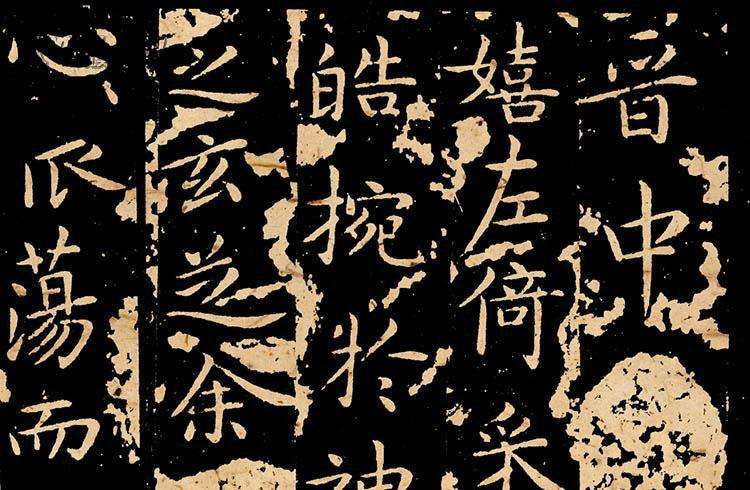 晉中
嬉左倚采
皓捥於神
之玄芝余
心蕩而